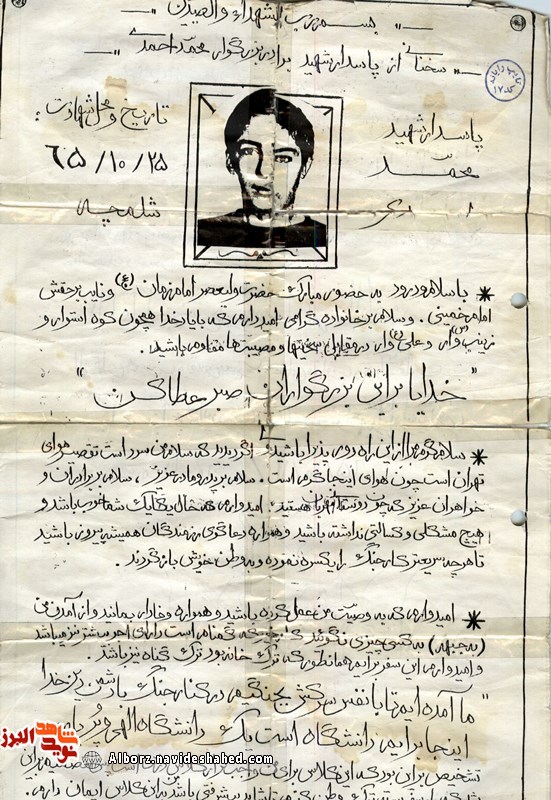 بسم رب الشهداء والصدیقین
سخنانی از پاسدار شهید برادر بزرگوار محمد احمدی
پاسدار شهید
محمد
تاریخ و محل شهادت:
۶۵/۱۰/۲۵
شلمچه
* با سلام و درود به حضور مبارک حضرت ولیعصر امام زمان (عج) و نایب برحقش
امام خمینی. و سلام بر خانواده گرامی امیدوارم که با یاد خدا همچون کوه استوار و
زینب وار و علی وار در مقابل سختیها و مصیبت‌ها مقاوم باشید.
"خدایا برای این بزرگواران صبر عطا کن"
* سلام گرم مرا از این راه دور پذیرا باشید اگر دیدید که سلام من سرد است تقصیر هوای
تهران است چون هوای اینجا گرم است. سلام بر پدر و مادر عزیز، سلام بر برادران و
خواهران عزیز که چون دوستانی مهربان هستید. امیدوارم که حال یکایک شما خوب باشد و
هیچ مشکلی و کسالتی نداشته باشید و همواره دعاگوی رزمندگان همیشه پیروز باشید
تا هر چه سریعتر کار جنگ را یکسره نموده و به وطن خویش بازگردند.
* امیدوارم که به وصیت من عمل کرده باشید و همواره وفادار بمانید و از آمدن من
(به جبهه) به کسی چیزی نگوئید که هر چه گمنام است دارای اجر بیشتر نیز میباشد
و امیدوارم این سفر برایم همانطور که ترک خانه بود ترک گناه نیز باشد.
"ما آمده ایم تا با نفس سرکش بجنگیم در کنار جنگ با دشمن دین خدا
اینجا برایم دانشگاه است یک دانشگاه الهی و
تشخیص براین بود که این کلاس برای
باشد براین کلاس ایمان دارم.
نوید شاهد البرز
Alborz.navideshahed.com